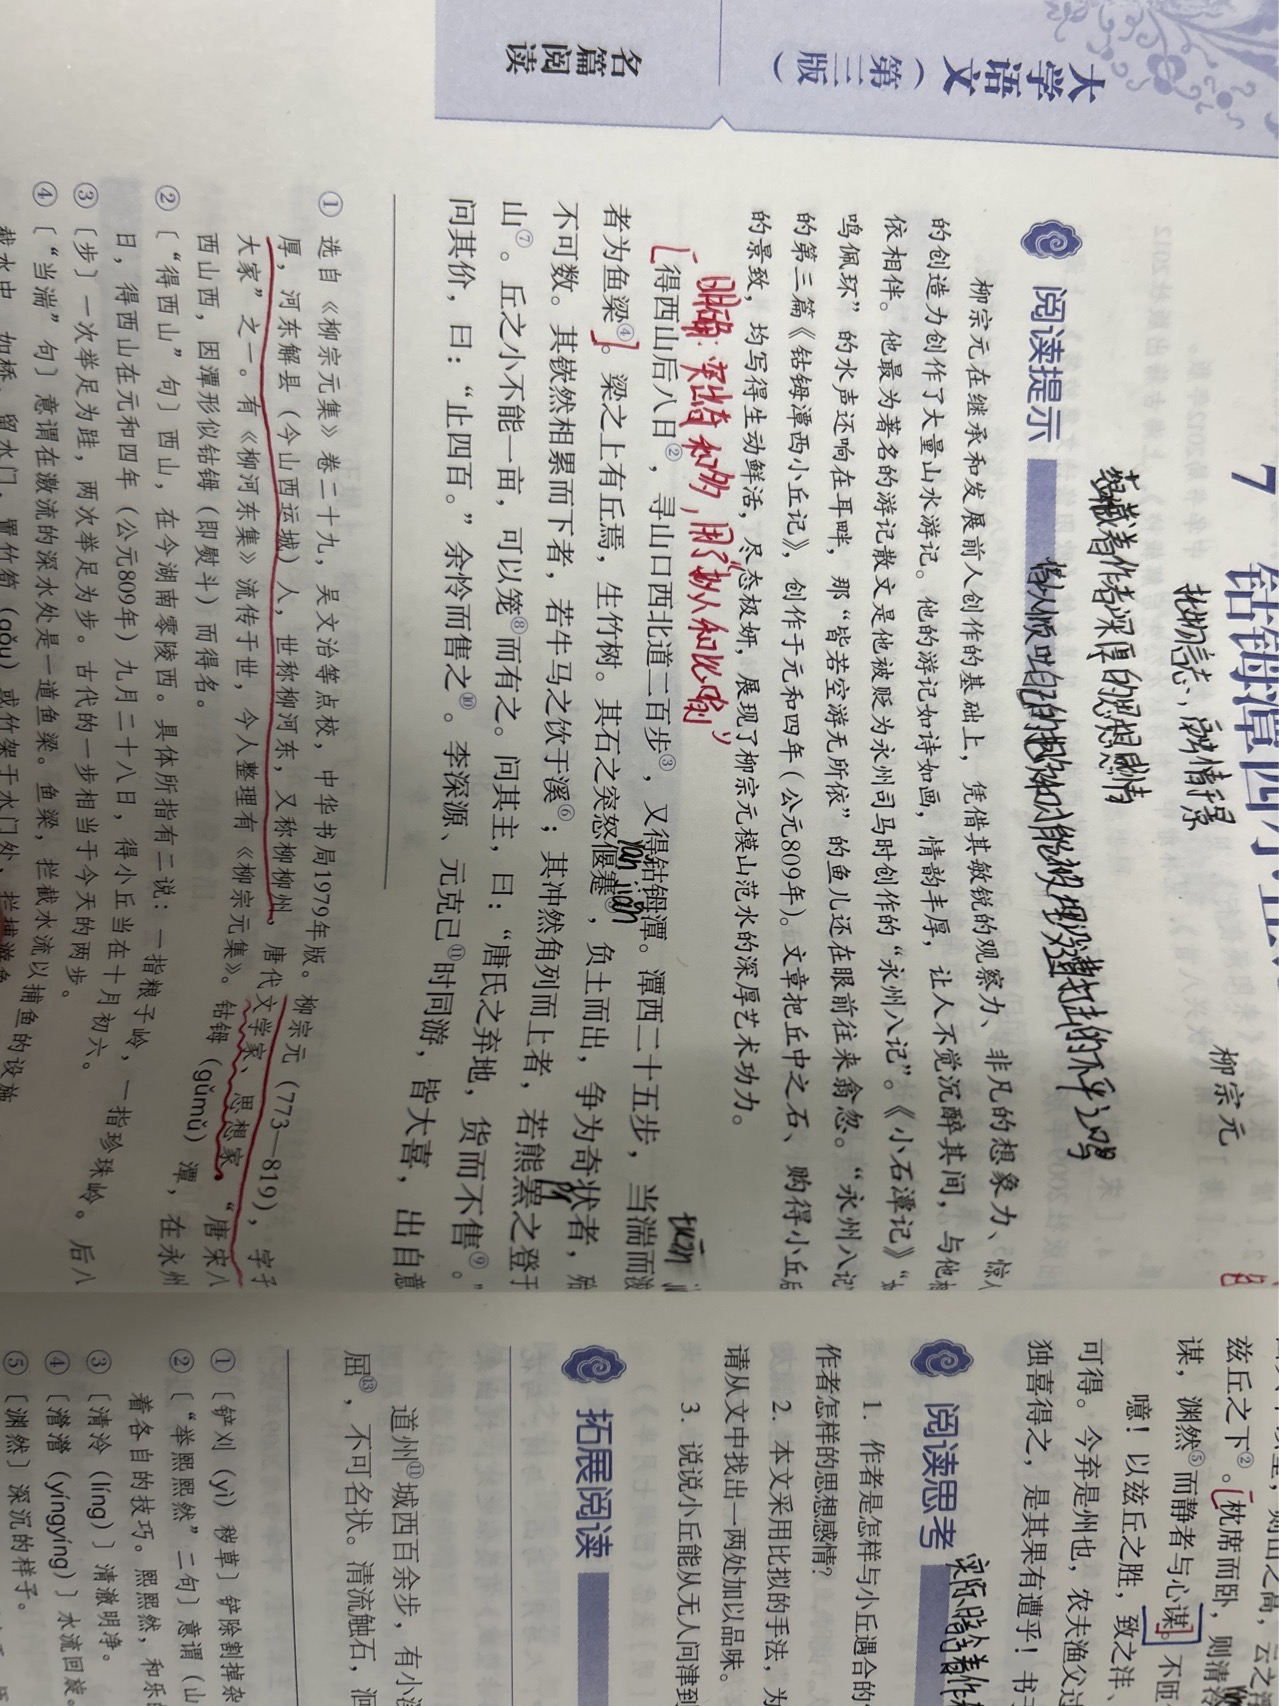 大学语文（第三版）
名篇阅读
7 钴鉧潭西小丘
柳宗元
托物言志、寓情于景
蕴藏着作者深厚的思想感情
阅读提示
柳宗元在继承和发展前人创作的基础上，凭借其敏锐的观察力、非凡的想象力、惊人
的创造力创作了大量山水游记。他的游记如诗如画，情韵丰厚，让人不觉沉醉其间，与他相
依相伴。他最为著名的游记散文是他被贬为永州司马时创作的“永州八记”。《小石潭记》“如
鸣佩环”的水声还响在耳畔，那“皆若空游无所依”的鱼儿还在眼前往来翕忽。“永州八记”
的第三篇《钴鉧潭西小丘记》，创作于元和四年（公元809年）。文章把丘中之石、购得小丘后
的景致，均写得生动鲜活，尽态极妍，展现了柳宗元模山范水的深厚艺术功力。
明确：突出奇和多，用了拟人和比喻
得西山后八日②，寻山口西北道二百步③，又得钴鉧潭。潭西二十五步，当湍而浚
tuān
者为鱼梁④。梁之上有丘焉，生竹树。其石之突怒偃蹇，负土而出，争为奇状者，殆
yǎn jiǎn
不可数。其嵚然相累而下者，若牛马之饮于溪⑥；其冲然角列而上者，若熊罴之登于
pí
山⑦。丘之小不能一亩，可以笼⑧而有之。问其主，曰：“唐氏之弃地，货而不售⑨。”
问其价，曰：“止四百。”余怜而售之⑩。李深源、元克己⑪时同游，皆大喜，出自意
① 选自《柳宗元集》卷二十九，吴文治等点校，中华书局1979年版。柳宗元（773—819），字子
厚，河东解县（今山西运城）人，世称柳河东，又称柳柳州，唐代文学家、思想家，“唐宋八
大家”之一。有《柳河东集》流传于世，今人整理有《柳宗元集》。钴鉧（gǔmǔ）潭，在永州
西山西，因潭形似钴鉧（即熨斗）而得名。
② 〔“得西山”句〕西山，在今湖南零陵西。具体所指有二说：一指粮子岭，一指珍珠岭。后八
日，得西山在元和四年（公元809年）九月二十八日，得小丘当在十月初六。
③ 〔步〕一次举足为跬，两次举足为步。古代的一步相当于今天的两步。
④ 〔“当湍”句〕意谓在激流的深水处是一道鱼梁。鱼梁，拦截水流以捕鱼的设施
截水中，如桥，留水门，置竹笱（gǒu）或竹架于水门外，拦捕游鱼
兹丘之下②。枕席而卧，则清泠
谋，渊然⑤而静者与心谋。不匝
噫！以兹丘之胜，致之沣、
可得。今弃是州也，农夫渔父过
独喜得之，是其果有遭乎！书于
阅读思考
1. 作者是怎样与小丘遇合的
作者怎样的思想感情？
2. 本文采用比拟的手法，为
请从文中找出一两处加以品味。
3. 说说小丘能从无人问津到
拓展阅读
道州⑪城西百余步，有小溪
屈⑬，不可名状。清流触石，洄
① 〔铲刈（yì）秽草〕铲除割掉杂
② 〔“举熙熙然”二句〕意谓（山
着各自的技巧。熙熙然，和乐
③ 〔清泠（líng）〕清澈明净。
④ 〔瀯瀯（yíngyíng）〕水流回旋。
⑤ 〔渊然〕深沉的样子。